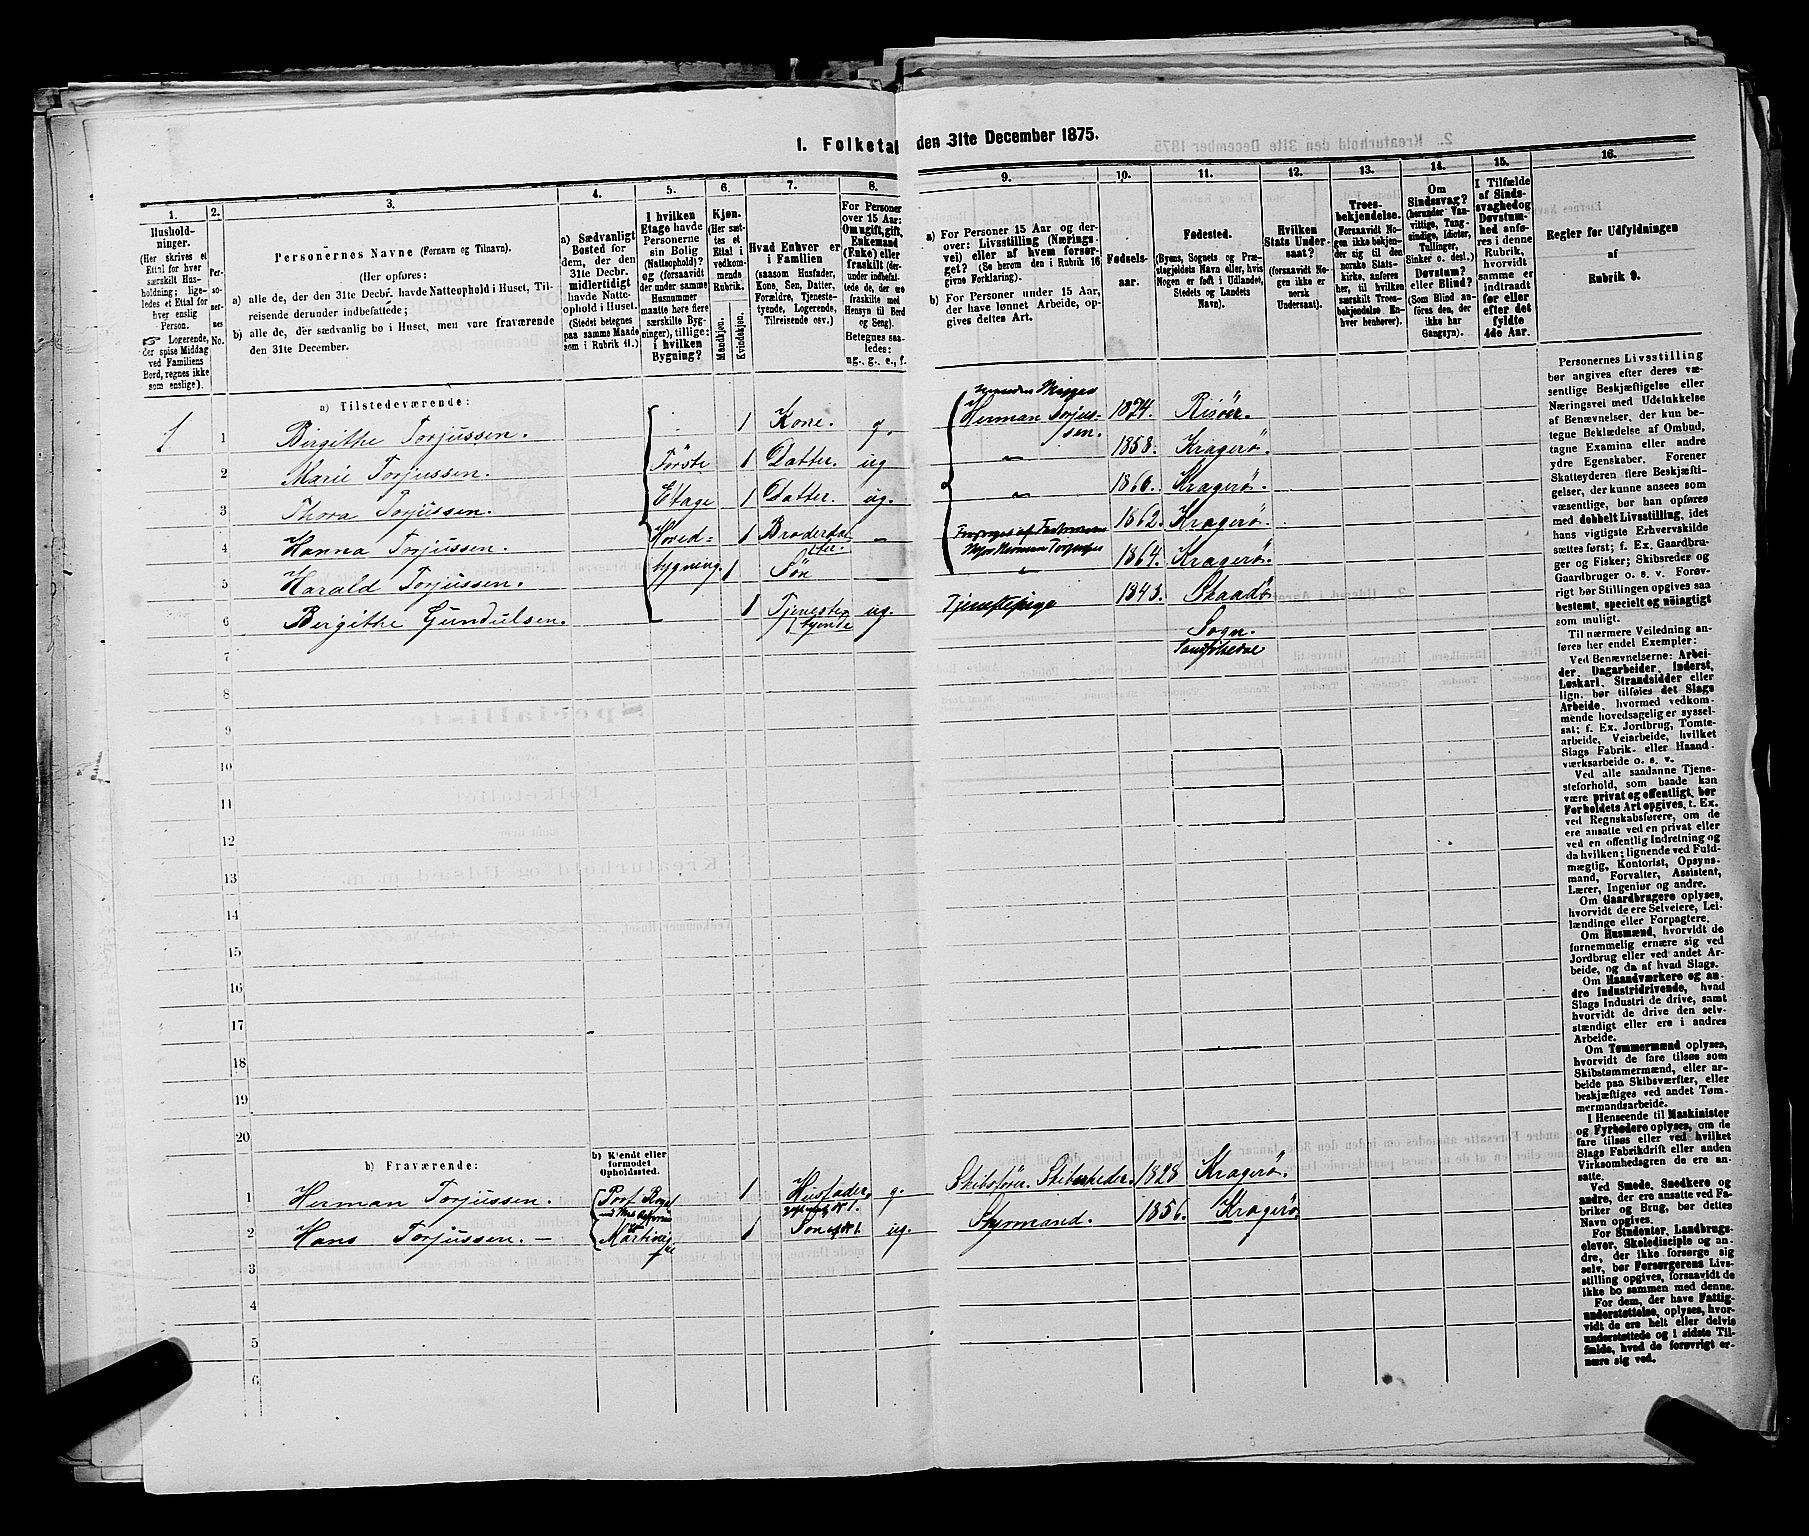 1. Folketal den 31te December 1875.
1.
2.
3.
4.
5.
6.
7.
8.
9.
10.
11.
12.
13.
14.
15.
16.
Husholdninger.
(Her skrives et Ettal for hver særskilt Husholdning; ligeledes et Ettal for hver enslig Person.
☞ Logerende, der spise Middag ved Familiens Bord, regnes ikke som enslige).
Personernes No.
Personernes Navne (Fornavn og Tilnavn).
(Her opføres:
a) alle de, der den 31te Decbr. havde Natteophold i Huset, Tilreisende derunder indbefattede;
b) alle de, der sædvanlig bo i Huset, men vare fraværende den 31te December.
a) Sædvanligt Bosted for dem, der den 31te Decbr. midlertidigt havde Natteophold i Huset.
(Stedet betegnes paa samme Maade som i Rubrik 11.)
I hvilken Etage havde Personerne sin Bolig (Natteophold)? og (forsaavidt der under samme Husnummer maatte høre flere særskilte Bygninger), tillige: i hvilken Bygning?
Kjøn.
(Her sættes et Ettal i vedkommende Rubrik.
Mandkjøn.
Kvindekjøn.
Hvad Enhver er i Familien
(saasom Husfader, Kone, Søn, Datter, Forældre, Tjenestetyende, Logerende, Tilreisende osv.)
For Personer over 15 Aar: Om ugift, gift, Enkemand (Enke) eller fraskilt (derunder indbefattede de, der ere fraskilte med Hensyn til Bord og Seng).
Betegnes saaledes: ug., g., e., f.
a) For Personer 15 Aar og derover: Livsstilling (Næringsvei) eller af hvem forsørget? (Se herom den i Rubrik 16 givne Forklaring).
b) For Personer under 15 Aar, der have lønnet Arbeide, opgives dettes Art.
Fødselsaar.
Fødested.
(Byens, Sognets og Præstegjeldets Navn eller, hvis Nogen er født i Udlandet, Stedets og Landets Navn).
Hvilken Stats Undersaat?
(forsaavidt Nogen ikke er norsk Undersaat).
Troesbekjendelse.
(Forsaavidt Nogen ikke bekjender sig til den norske Statskirke, anføres her, til hvilken særskilt Troesbekjendelse Enhver henhører).
Om Sindssvag?
(herunder Vanvittige, Tungsindige, Idioter, Tullinger, Sinker o. desl.)
Døvstum? eller Blind?
(Som Blind anføres den, der ikke har Gangsyn).
I Tilfælde af Sindssvaghed og Døvstumhed anføres i denne Rubrik, hvorvidt samme er indtraadt før eller efter det fyldte 4de Aar.
Regler for Udfyldningen
af
Rubrik 9.
a) Tilstedeværende:
1 1 Birgithe Torjussen. 1 Kone. g. Herman Torjussen. 1824. Risöer.
2 Marie Torjussen. Förste 1 Datter. ug 〃 1858. Kragerö
3 Thora Torjussen. Etage 1 Datter. ug. 〃 1860. Kragerö.
4 Hanna Torjussen. Hoved= 1 Broderdatter. – 1862. Kragerö
5 Harald Torjussen. bygning. 1 Sön 〃 1864. Kragerö.
6 Birgithe Gundulsen. 1 Tjenestetyende ug Tjenestepige 1843. Skaadö Sogn.
7
8
9
10
11
12
13
14
15
16
17
18
19
20
b) Fraværende:
b) Kjendt eller formodet Opholdssted.
1 Herman Torjussen. Port Royal 1 Husfader. g. Skibsförer. Skibsrheder 1828 Kragerö
2 Hans Torjussen. – Martinique 1 Sön ug. Styrmand. 1856. Kragerö
3
4
5
6
Personernes Livsstilling bør angives efter deres væsentlige Beskjæftigelse eller Næringsvei med Udelukkelse af Benævnelser, der kun betegne Beklædelse af Ombud, tagne Examina eller andre ydre Egenskaber. Forener Skatteyderen flere Beskjæftigelser, der kunne ansees som væsentlige, bør han opføres med dobbelt Livsstilling, idet hans vigtigste Erhvervskilde sættes først; f. Ex. Gaardbruger og Fisker; Skibsreder og Gaardbruger o. s. v. Forøvrigt bør Stillingen opgives saa bestemt, specielt og nøiagtigt som muligt.
Til nærmere Veiledning anføres her endel Exempler:
Ved Benævnelserne: Arbeider, Dagarbeider, Inderst, Løskarl, Strandsidder eller lign. bør tilføies det Slags Arbeide, hvormed vedkommende hovedsagelig er sysselsat; f. Ex. Jordbrug, Tomtearbeide, Veiarbeide, hvilket Slags Fabrik- eller Haandværksarbeide o. s. v.
Ved alle saadanne Tjenesteforhold, som baade kan være privat og offentligt, bør Forholdets Art opgives, t. Ex. ved Regnskabsførere, om de ere ansatte ved en privat eller ved en offentlig Indretning og da hvilken; lignende ved Fuldmægtig, Kontorist, Opsynsmand, Forvalter, Assistent, Lærer, Ingeniør og andre.
Om Gaardbrugere oplyses, hvorvidt de ere Selveiere, Leilændinge eller Forpagtere.
Om Husmænd, hvorvidt de fornemmelig ernære sig ved Jordbrug eller ved andet Arbeide, og da af hvad Slags.
Om Haandværkere og andre Industridrivende, hvad Slags Industri de drive, samt hvorvidt de drive den selvstændigt eller ere i andres Arbeide.
Om Tømmermænd oplyses, hvorvidt de fare tilsøs som Skibstømmermænd, eller arbeide paa Skibsværfter, eller beskjæftiges ved andet Tømmermandsarbeide.
I Henseende til Maskinister og Fyrbødere oplyses, om de fare tilsøs eller ved hvilket Slags Fabrikdrift eller anden Virksomhedsgren de ere ansatte.
Ved Smede, Snedkere og andre, der ere ansatte ved Fabriker og Brug, bør dettes Navn opgives.
For Studenter, Landbrugselever, Skoledisciple og andre, der ikke forsørge sig selv, bør Forsørgerens Livsstilling opgives, forsaavidt de ikke bo sammen med denne.
For dem, der have Fattigunderstøttelse, oplyses, hvorvidt de ere helt eller delvis understøttede og i sidste Tilfælde, hvad de forøvrigt ernære sig ved.